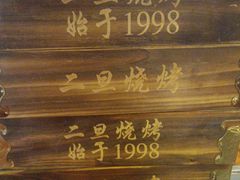 二旦烧烤
始于1998
二旦烧烤
二旦烧烤
始于1998